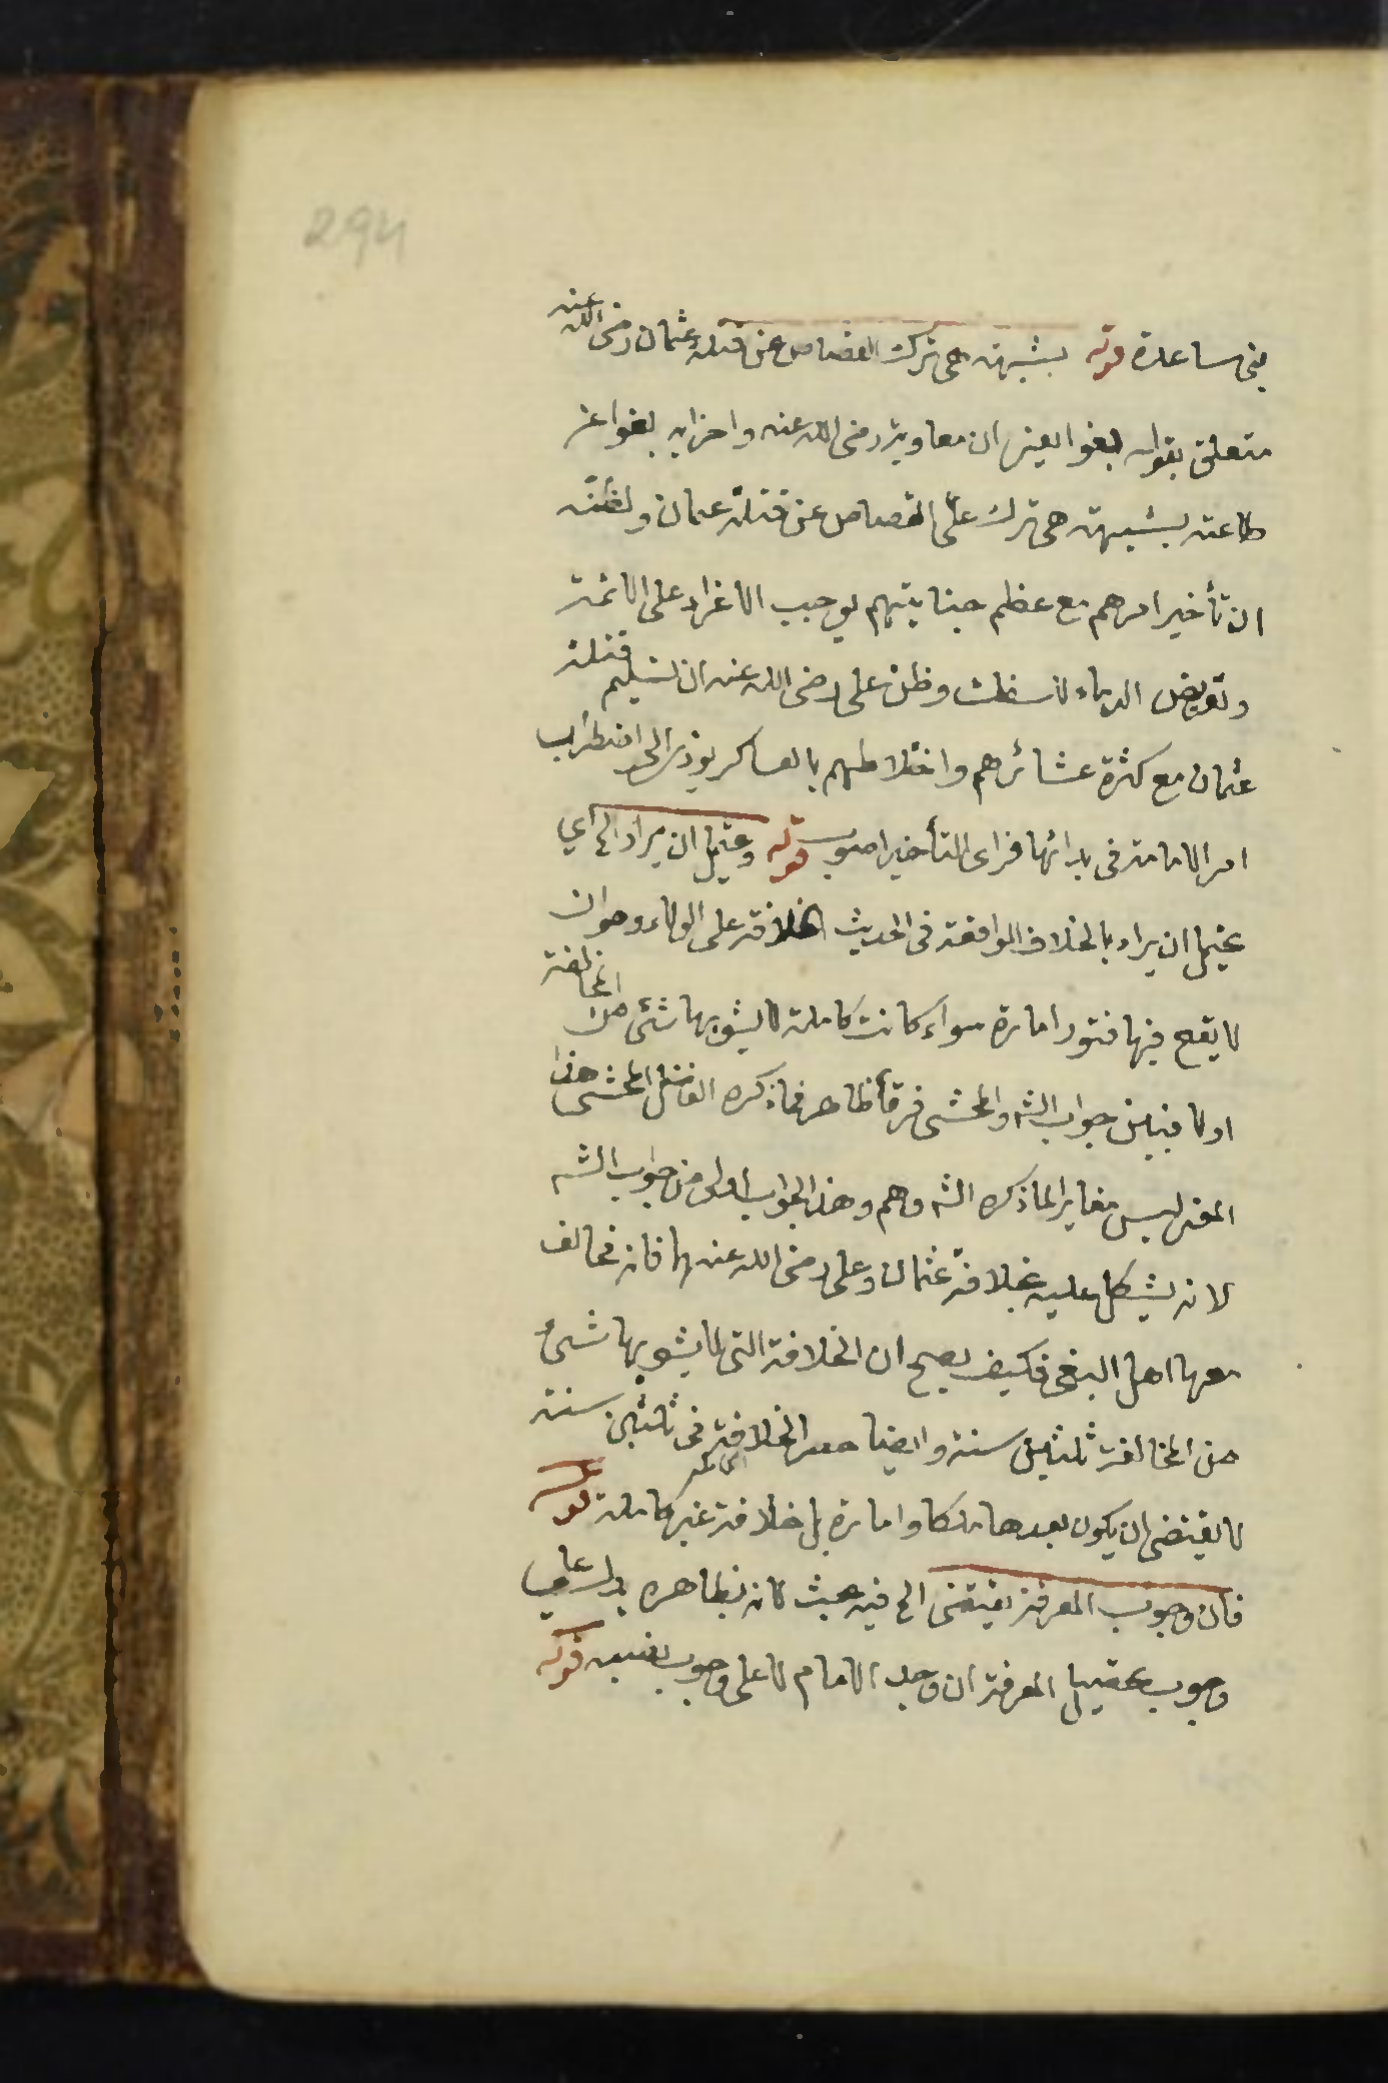 294
بنى ساعدة قوله بشبهة هى ترك القصاص عن قتلة عثمان رضى الله عنه
متعلق بقوله بغوا يعنى ان معاوية رضى الله عنه واحزابه بغوا عن
طاعته بشبهة هى ترك على القصاص عن قتلة عثمان ولظنه
ان تأخير امرهم مع عظم جنايتهم يوجب الاغراء على الائمة
وتعريض الدماء للسفك وظن على رضى الله عنه ان تسليم قتلة
عثمان مع كثرة عشائرهم واختلاطهم بالعساكر يؤدى الى اضطراب
امر الامامة فى بدائها فراى التأخير اصوب قوله ويحتمل ان يراد الخ اي
يحتمل ان يراد بالخلاف الواقعة فى الحديث الخلافة على الولاء وهو ان
لا يقع فيها فتور امارة سواء كانت كاملة لا يشوبها شئ من المخالفة
اولا فبين جواب الشه والمحشى فرقا ظاهر فما ذكره الفاضل المحشى هذا
المعنى ليس مغايرا لما ذكره الشه وهم وهذا الجواب اولى من جواب الشه
لانه يشكل عليه بخلافة عثمان وعلى رضى الله عنهما فانه خالف
معهما اهل البغى فكيف يصح ان الخلافة التى لا يشوبها شئ
من المخالفة ثلثين سنة وايضا حصر الخلافة فى ثلثين سنة
لا يقتضى ان يكون بعدها ملكا وامارة بل خلافة غير كاملة قوله
فان وجوب المعرفة يقتضى الخ فيه بحث لانه بظاهره يدل على
وجوب تحصيل المعرفة ان وجد الامام لا على وجوب نصبه قوله